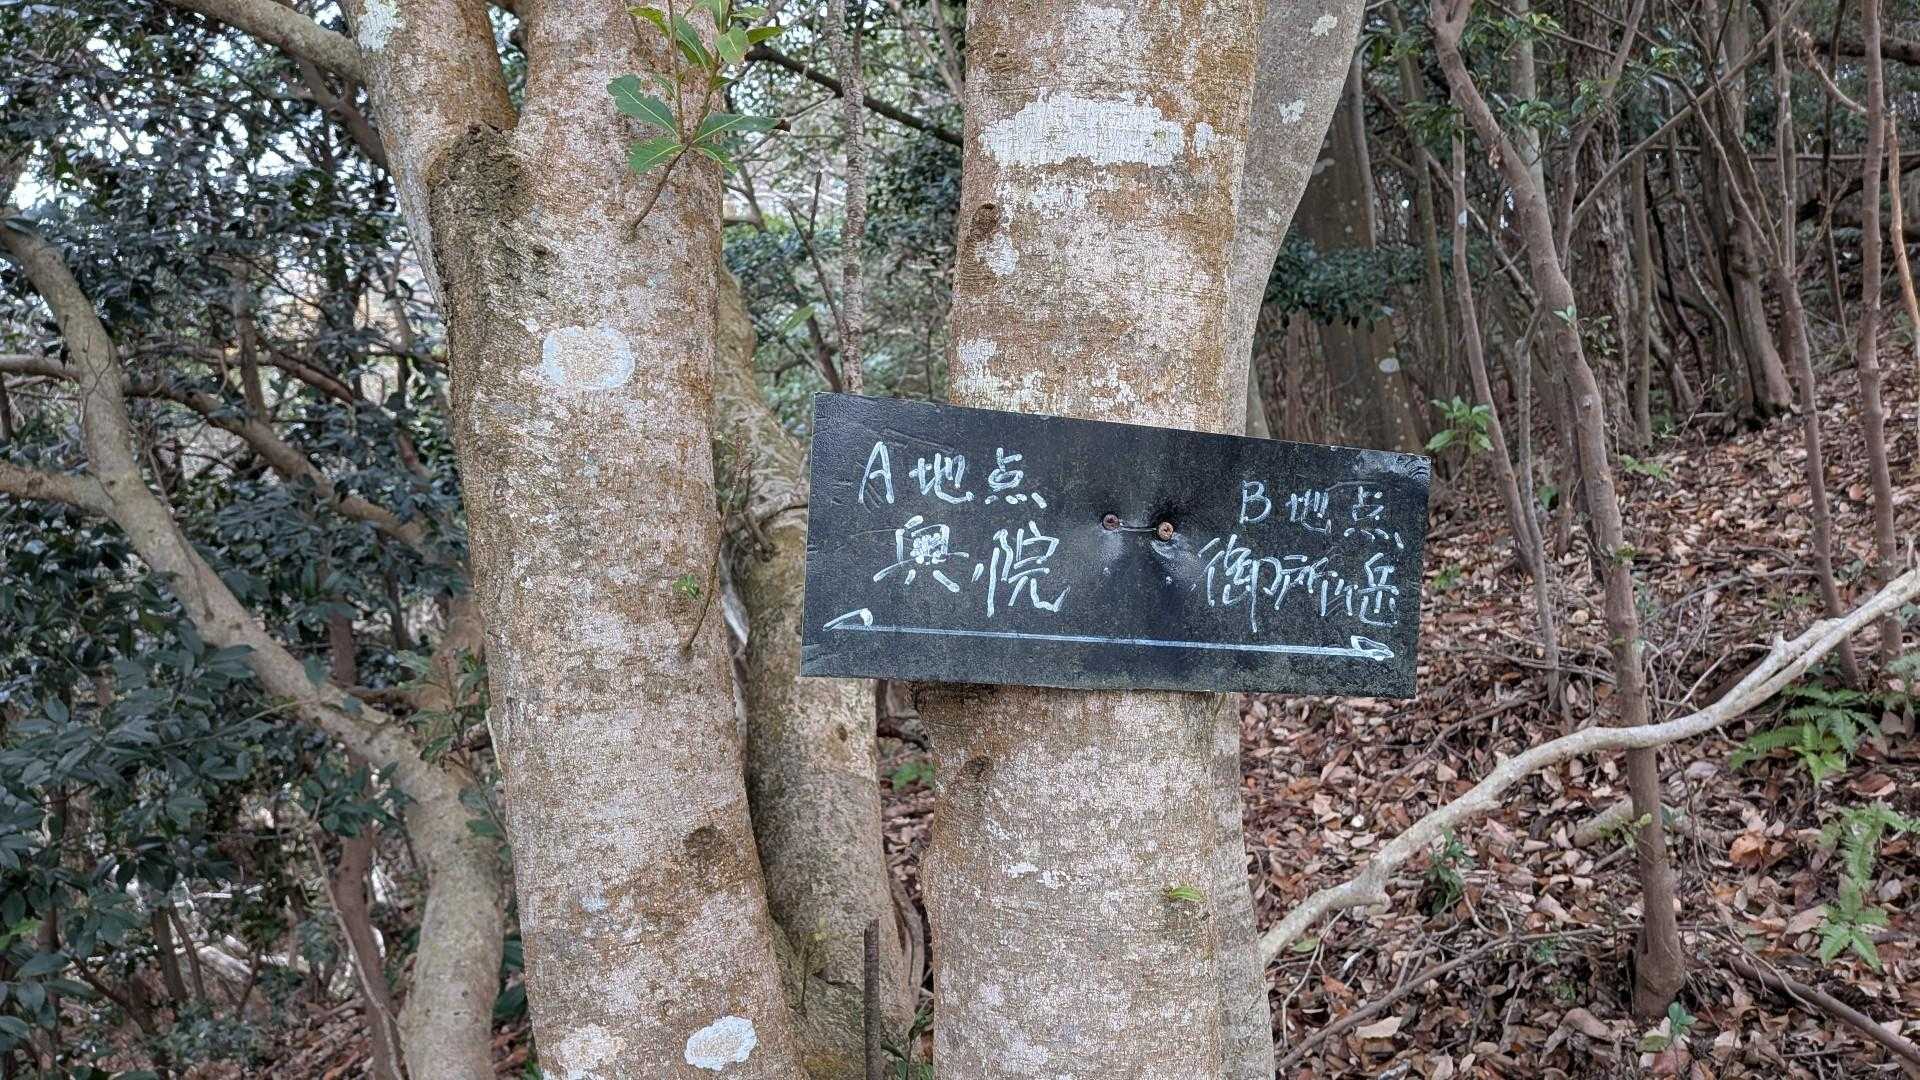 A地点
奥院
B地点
御所岳